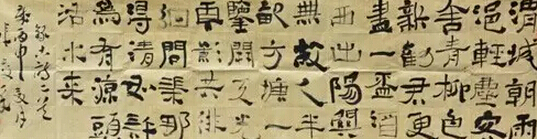 渭城朝雨
浥輕塵客
舍青柳色
新勸君更
盡一盃酒
西出陽關
無故人半
畝方塘一
鑒開天光
雲影共徘
徊問渠那
得清如許
為有源頭
活水來
錄古詩二首
丙申夏月